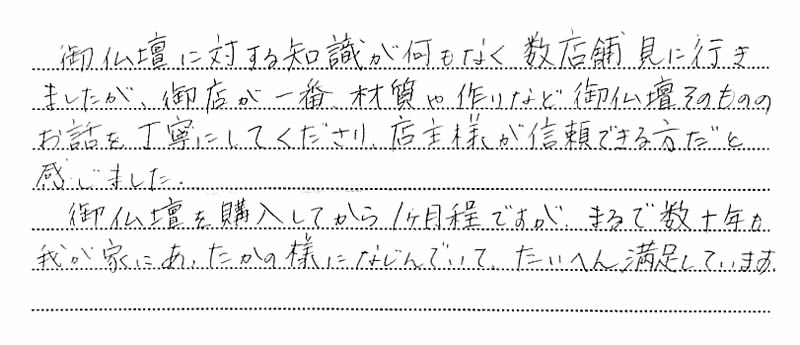 御仏壇に対する知識が何もなく数店舗見に行き
ましたが、御店が一番、材質や作りなど御仏壇そのものの
お話を丁寧にしてくださり、店主様が信頼できる方だと
感じました。
御仏壇を購入してから1ヶ月程ですが、まるで数十年も
我が家にあったかの様になじんでいて、たいへん満足しています。